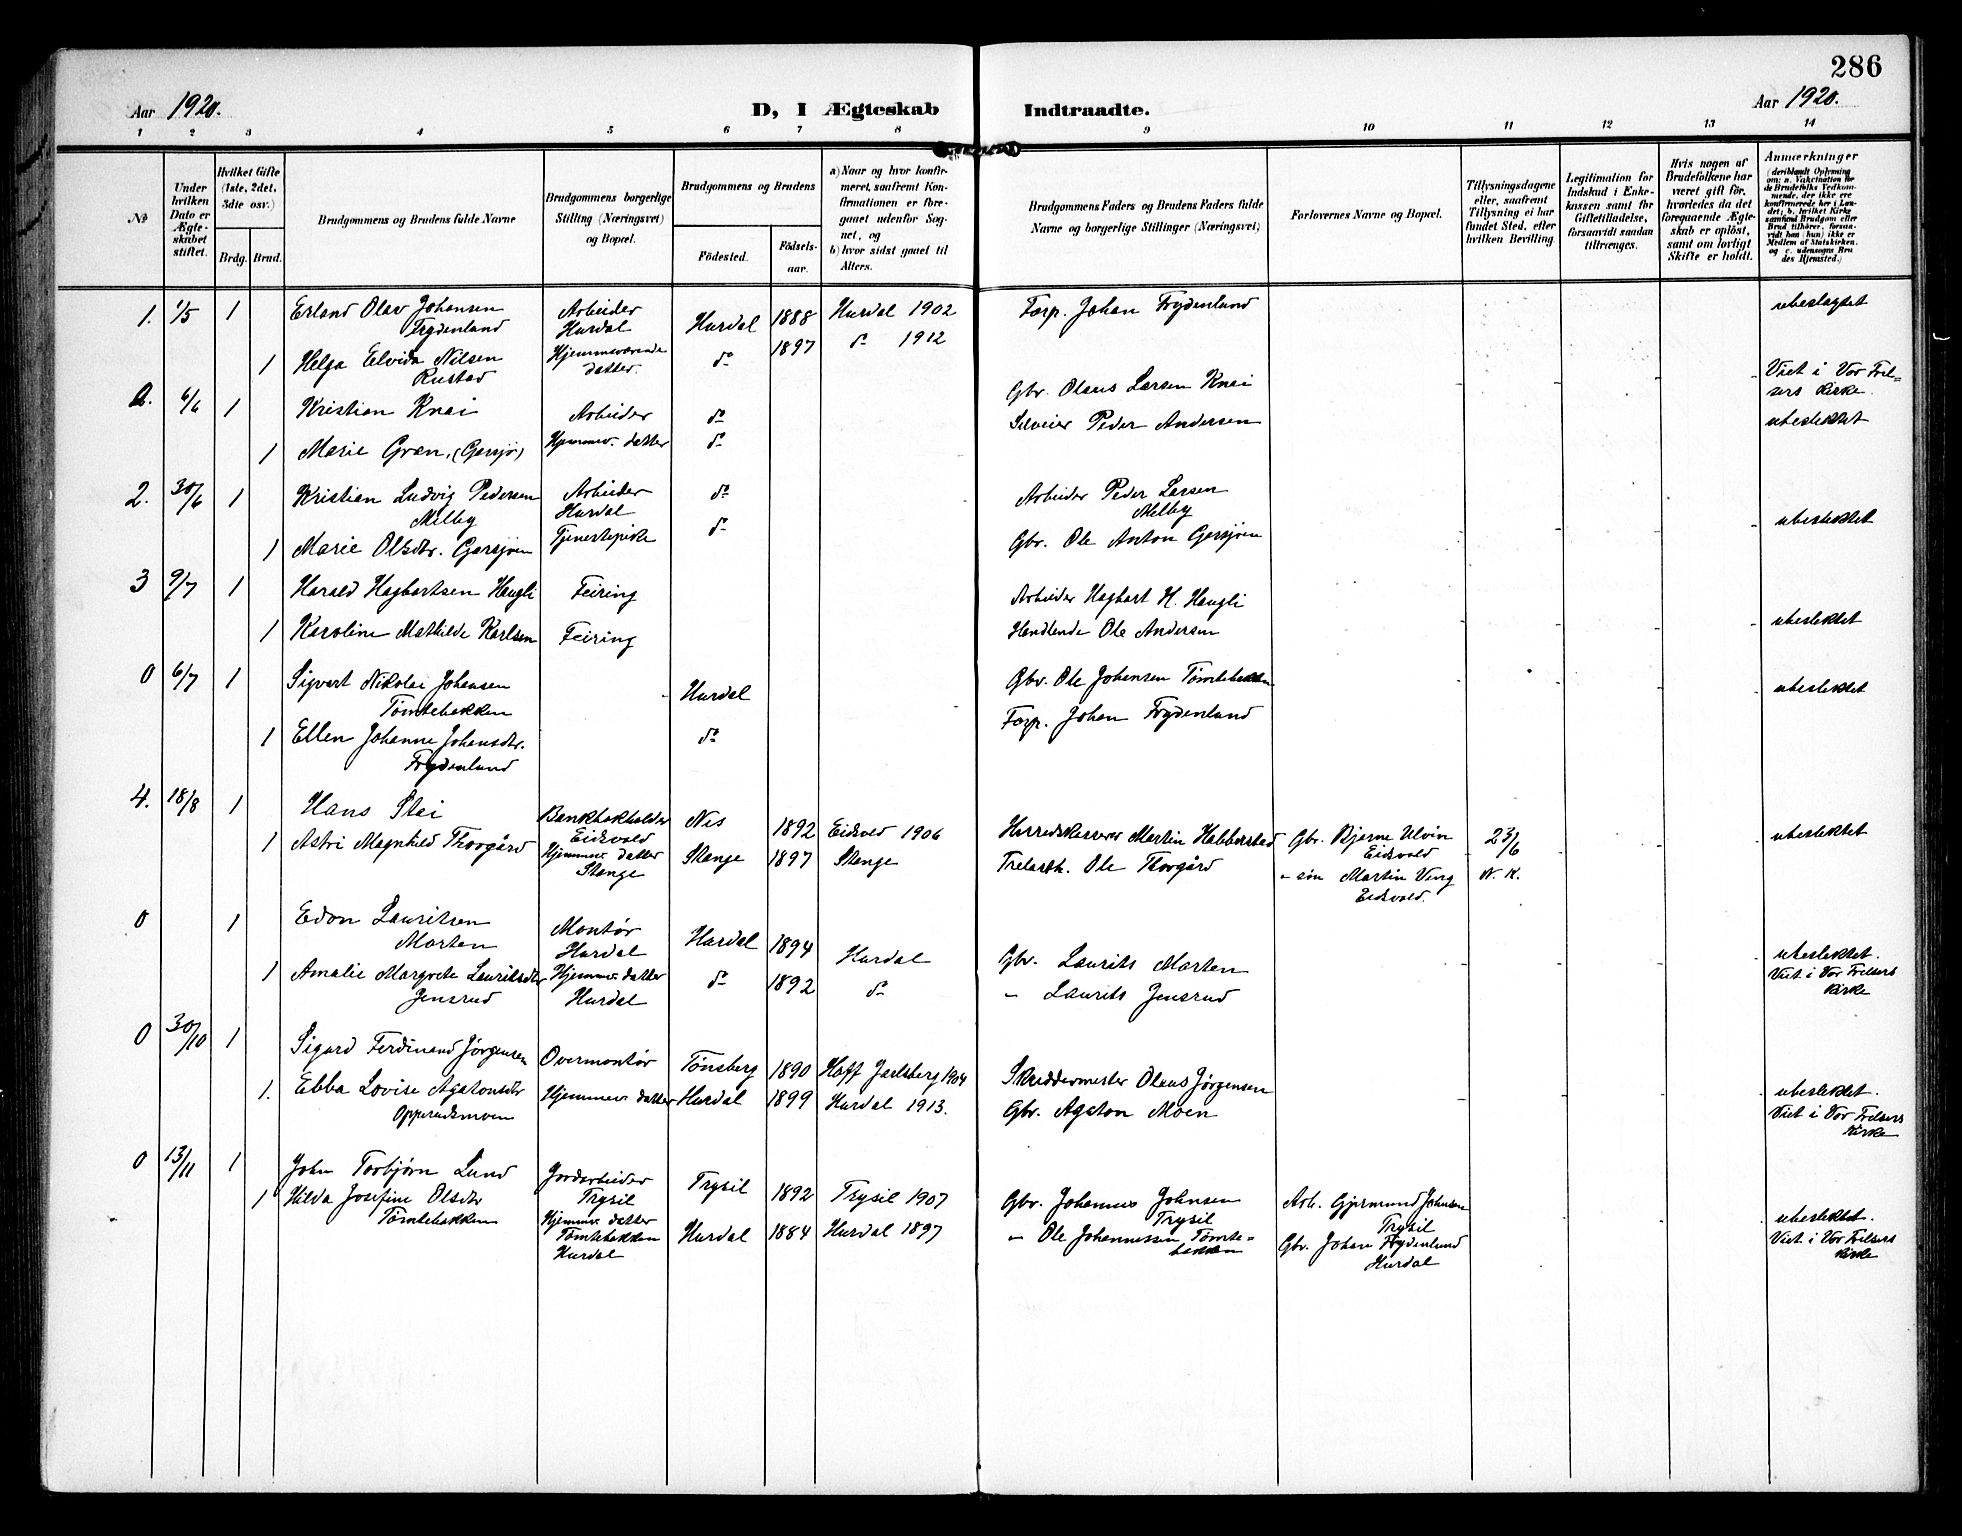 286
Aar 1920.
D, I Ægteskab Indtraadte.
Aar 1920.
1 2 3 4 5 6 7 8 9 10 11 12 13 14
№
Under hvilken Dato er Ægteskabet stiftet.
Hvilket Gifte (1ste, 2det, 3die osv.)
Brdg. Brud.
Brudgommens og Brudens fulde Navne
Brudgommens borgerlige Stilling (Næringsvei) og Bopæl.
Brudgommens og Brudens
Födested.
Födsels-aar.
a) Naar og hvor konfirmeret, saafremt Konfirmationen er foregaaet udenfor Sognet, og
b) hvor sidst gaaet til Alters.
Brudgommens Faders og Brudens Faders fulde Navne og borgerlige Stillinger (Næringsvei)
Forlovernes Navne og Bopæl.
Tillysningsdagene eller, saafremt Tillysning ei har fundet Sted, efter hvilken Bevilling.
Legitimation for Indskud i Enkekassen samt for Giftetilladelse, forsaavidt saadan tiltrænges.
Hvis nogen af Brudefolkene har været gift för, hvorledes da det foregaaende Ægteskab er oplöst, samt om lovligt Skifte er holdt.
Anmærkninger
(deriblandt Oplysning om: a. Vakcination for de Brudefolks Vedkommende, der ikke ere konfirmerede her i Landet; b. hvilket Kirkesamfund Brudgom eller Brud tilhörer, forsaavidt han (hun) ikke er Medlem af Statskirken, og c. udensogns Brudes Hjemsted.)
1. 1/5 1 Erland Olav Johansen Frydenlund Arbeider Hurdal Hurdal 1888 Hurdal 1902 Forp. Johan Frydenlund ubeslagtet
1 Helga Elvida Nilsen Rustad Hjemmeværende datter. do 1897 do 1912 Viet i Vor Frelsers Kirke.
a. 6/6 1 Kristian Knai Arbeider do Gbr. Olaus Larsen Knai
1 Marie Gran, (Garsjø) Hjemmev. datter do Peder Andersen ubeslektet
2. 30/6 1 Kristian Ludvig Pedersen Melby Arbeider Hurdal do Arbeider Peder Larsen Melby
1 Marie Olsdtr. Garsjøen Tjenestepike do Gbr. Ole Anton Garsjøen ubeslektet
3 9/7 1 Harald Hagbartsen Haugli Feiring Arbeider Hagbart H. Haugli
1 Karoline Mathilde Karlsen Feiring Handlende Ole Andersen ubeslektet
0 6/7 1 Sigvart Nikolai Johansen Tømtebakken Hurdal Gbr. Ole Johansen Tømtebakken ubeslektet
1 Ellen Johanne Johansdtr. Frydenlund do Forp. Johan Frydenlund
4. 18/8 1 Hans Stai Bankbokholder Eidsvold Nes 1892 Eidsvold 1906 Herredskasserer Martin Habberstad Gbr. Bjarne Ulvin Eidsvold 23/6 ubeslektet
1 Astri Magnhild Thorgård Hjemmev. datter Stange Stange 1897 Stange Trelasth. Ole Thorgård " søn Martin Ving Eidsvold. N. K.
0 1 Edon Lauritsen Marten Montør Hurdal Hurdal 1894 Hurdal Gbr. Laurits Marten ubeslektet.
1 Amalie Margrete Lauritsdtr Jensrud Hjemmev. datter Hurdal do 1892 do " Laurits Jensrud Viet i Vor Frelsers Kirke
0 30/10 1 Sigurd Ferdinand Jørgensen Overmontør Tønsberg 1890 Haff Jarlsberg 1904 Skreddermester Olaus Jørgensen ubeslektet.
1. Ebba Lovise Agatonsdtr Opperudsmoen Hjemmev. datter Hurdal 1899 Hurdal 1913. Gbr. Agaton Moen Viet i Vor Frelsers Kirke
0 13/11 1 John Torbjørn Lund Jordarbeider Trysil Trysil 1892 Trysil 1907 Gbr. Johannes Johnsen Trysil Arb. Gjermund Johnsen Trysil ubeslektet.
1 Hilda Josefine Olsdtr Tømtebakken Hjemmev. datter Tømtebakken Hurdal Hurdal 1884 Hurdal 1897 " Ole Johannessen Tømtebakken Gbr. Johan Frydenlund Hurdal Viet i Vor Frelsers Kirke